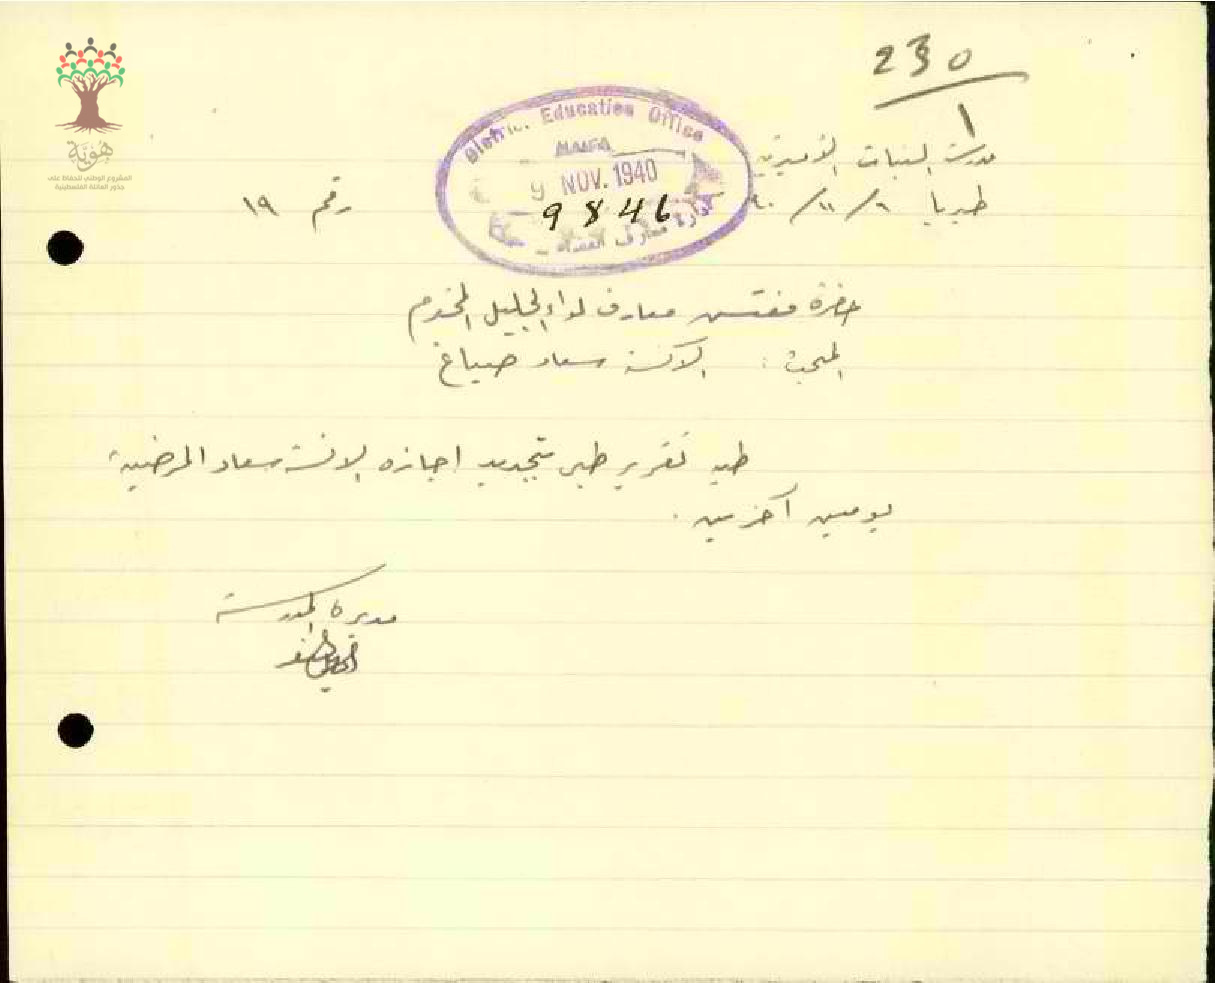 230
1
مدرسة البنات الأميرية
طبريا ٦/١١/٤٠
رقم ١٩
District Education Office
HAIFA
9 NOV. 1940
9846
إدارة معارف القضاء
هُوِيَّة
المشروع الوطني للحفاظ على
جذور العائلة الفلسطينية
حضرة مفتش معارف لواء الجليل المحترم
المبحث : الآنسة سعاد صباغ
طيه تقرير طبي بتجديد اجازه الآنسة سعاد المرضية
يومين آخرين .
مديرة المدرسة